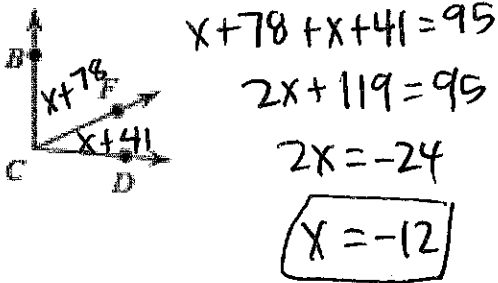 B
x+78
F
x+41
C
D
x+78+x+41=95
2x+119=95
2x=-24
x=-12